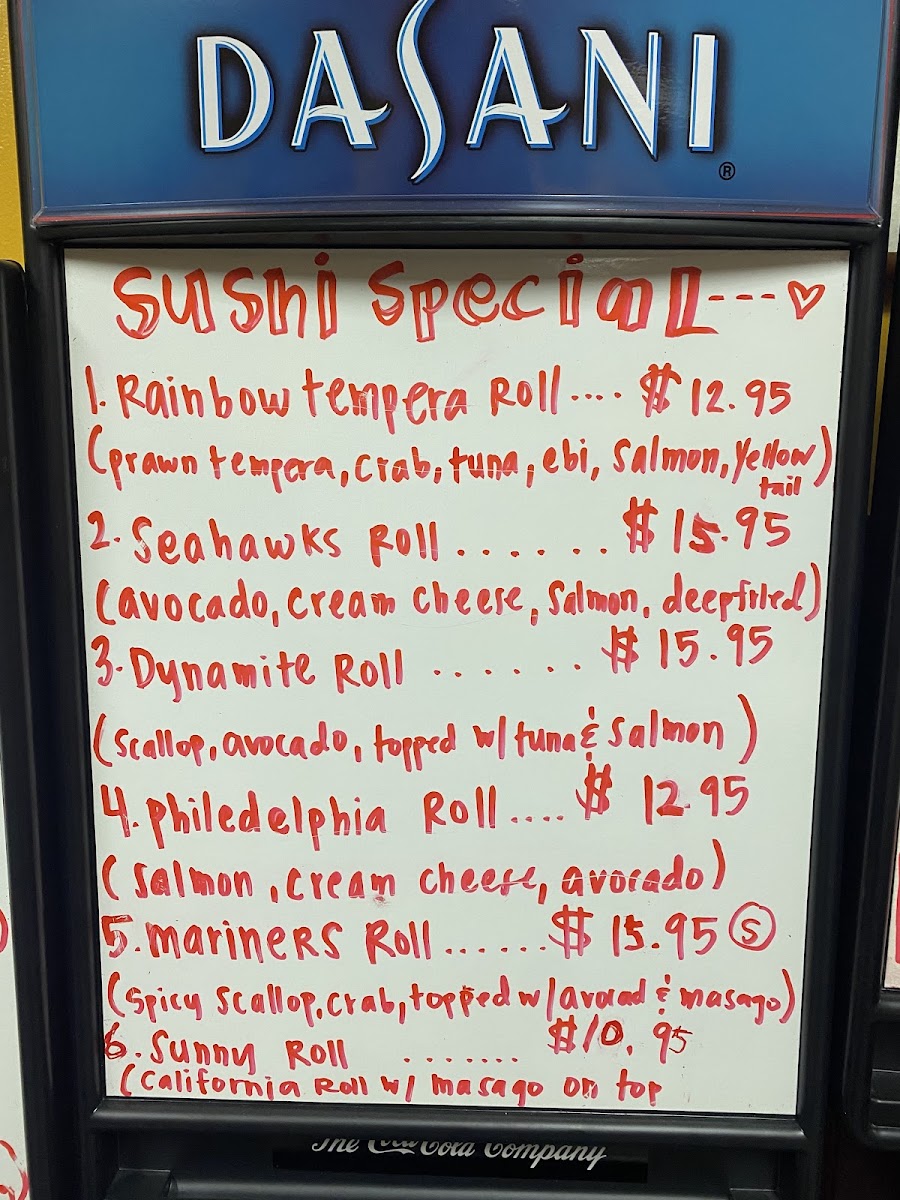 DASANI®
Sushi Special --- ♡
1. Rainbow tempera Roll .... $ 12.95
(prawn tempera, crab, tuna, ebi, Salmon, Yellow
tail)
2. Seahawks Roll ....... $ 15.95
(avocado, cream cheese, Salmon, deepfried)
3. Dynamite Roll ....... $ 15.95
(scallop, avocado, topped w/ tuna & Salmon)
4. Philedelphia Roll .... $ 12.95
(Salmon, cream cheese, avocado)
5. Mariners Roll ...... $ 15.95 Ⓢ
(Spicy Scallop, crab, topped w/ avocad & masago)
6. Sunny Roll ....... $10.95
(California Roll w/ masago on top
The Coca-Cola Company